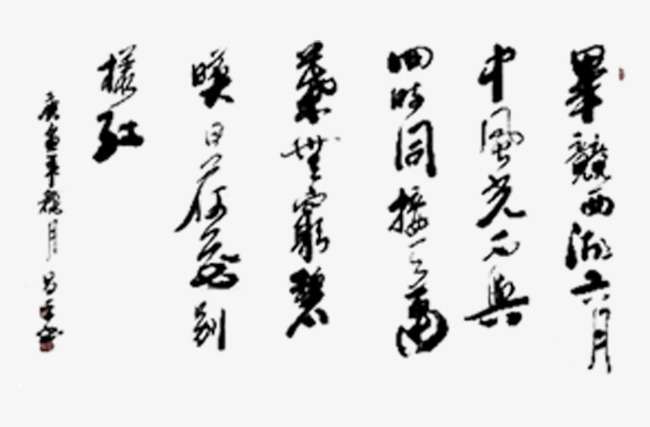 畢競西湖六月
中風光不與
四時同接天蓮
葉無窮碧
暎日荷花別
樣紅
庚寅年 月